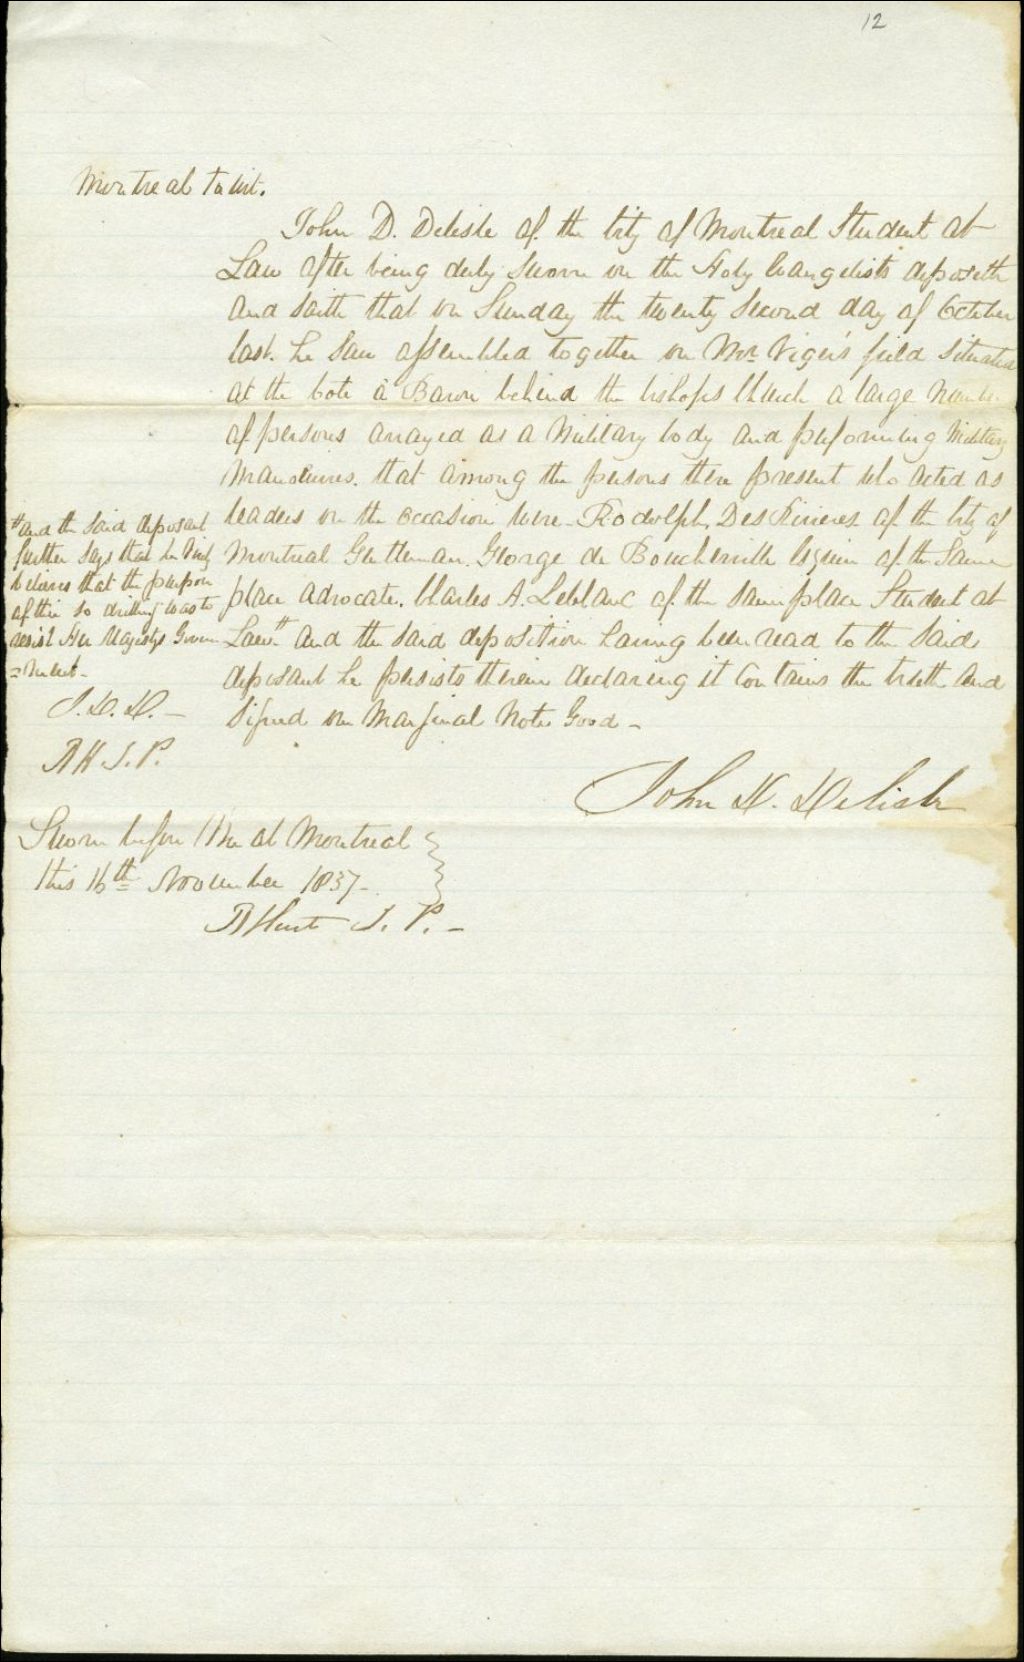 12
Montreal to wit.
John D. Delisle of the City of Montreal Student at
Law after being duly sworn on the Holy Evangelists deposeth
and saith that on Sunday the twenty second day of October
last. he saw assembled together on Mr. Viger's field situated
at the Cote à Baron behind the bishops Church a large number
of persons arrayed as a Military body and performing Military
Manoeuvres. that among the persons there present who acted as
leaders on the occasion were Rodolph, DesRivieres of the City of
Montreal Gentleman. George de Boucherville Esquire of the Same
place advocate. Charles A. Leblanc of the same place Student at
Law # and the said deposition having been read to the said
deposant he persists therein declaring it Contains the truth and
Signed one Marginal Note Good -
# and the said deposant
further says that he verily
believes that the purpose
of their so drilling was to
resist Her Majestys Govern
=ment -
J. D. D. -
B H. J. P.
John D. Delisle
Sworn before Me at Montreal
this 16th November 1837 -
B Hart J. P. -